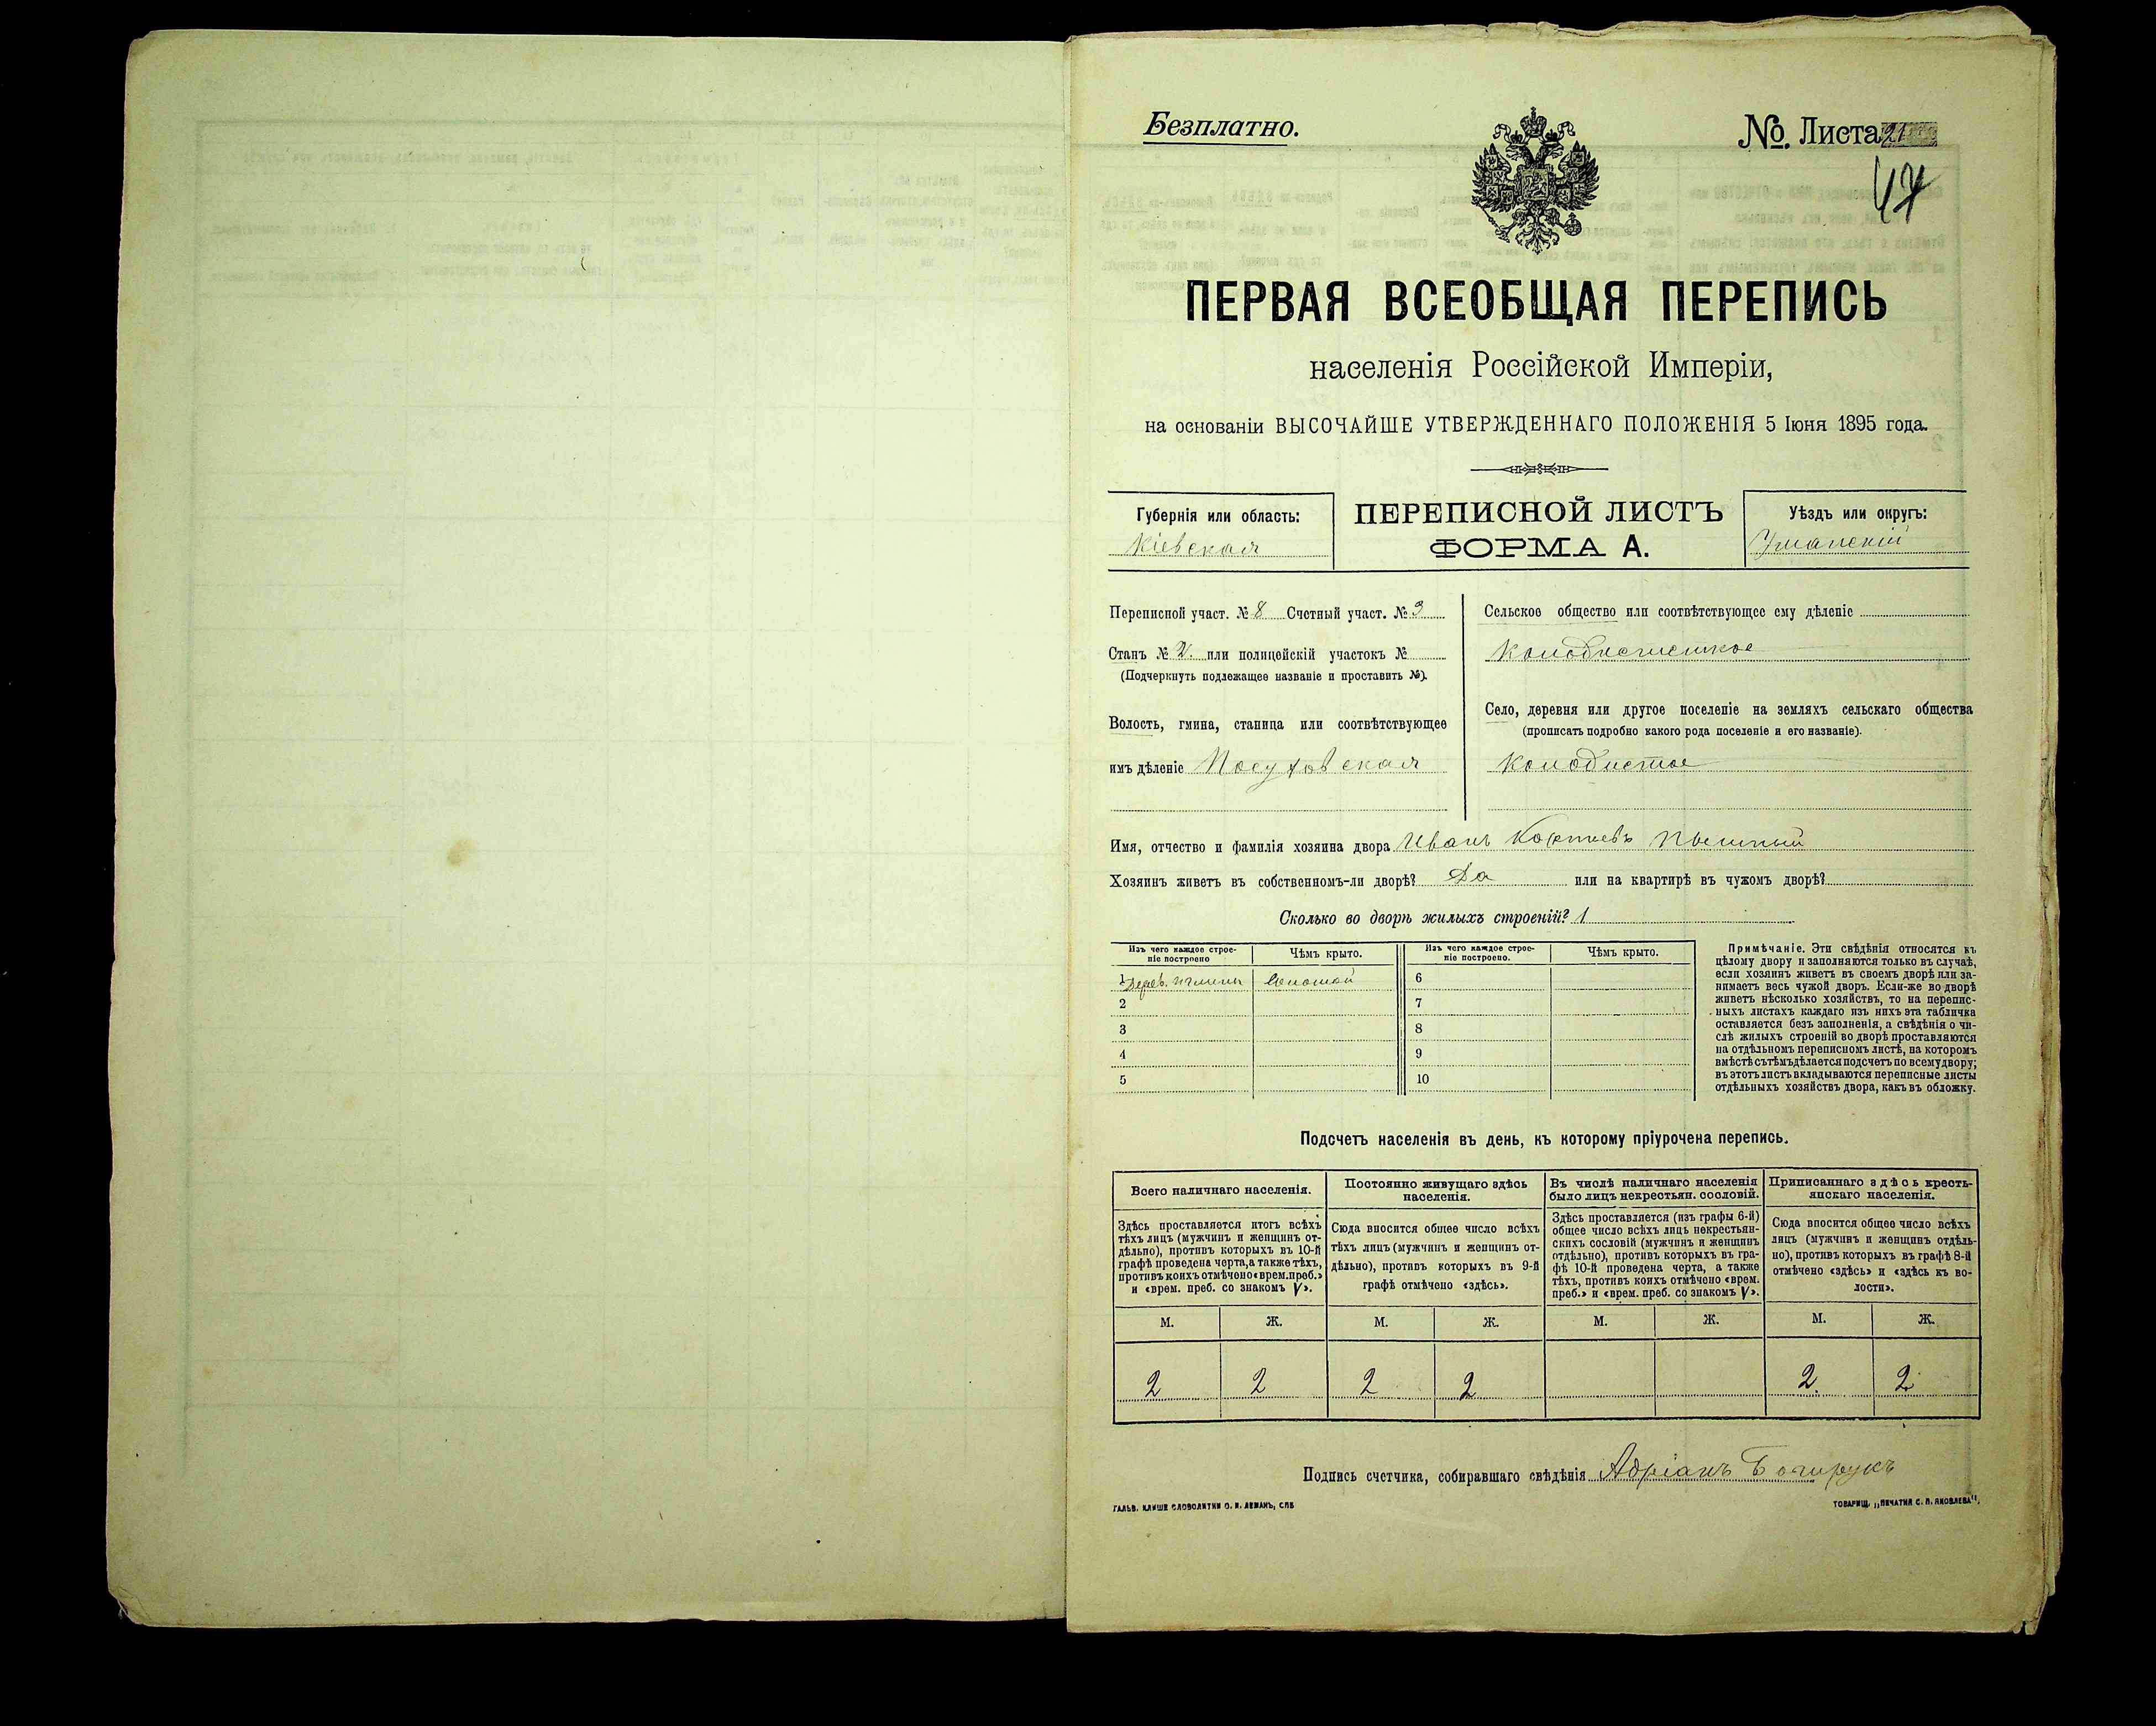 Безплатно.
№ Листа 21
47
ПЕРВАЯ ВСЕОБЩАЯ ПЕРЕПИСЬ
населенія Россійской Имперіи,
на основаніи ВЫСОЧАЙШЕ УТВЕРЖДЕННАГО ПОЛОЖЕНІЯ 5 Іюня 1895 года.
Губернія или область:
Кіевская
ПЕРЕПИСНОЙ ЛИСТЪ
ФОРМА А.
Уѣздъ или округъ:
Уманскій
Переписной участ. № 8 Счетный участ. № 3
Станъ № 2. или полицейскій участокъ №
(Подчеркнуть подлежащее названіе и проставить №).
Волость, гмина, станица или соотвѣтствующее
имъ дѣленіе Посуховская
Сельское общество или соотвѣтствующее ему дѣленіе
Колодистское
Село, деревня или другое поселеніе на земляхъ сельскаго общества
(прописать подробно какого рода поселеніе и его названіе).
Колодистое
Имя, отчество и фамилія хозяина двора Иванъ Пышный
Хозяинъ живетъ въ собственномъ-ли дворѣ? Да или на квартирѣ въ чужомъ дворѣ?
Сколько во дворѣ жилыхъ строеній? 1
Изъ чего каждое строе-
ніе построено
Чѣмъ крыто.
Изъ чего каждое строе-
ніе построено.
Чѣмъ крыто.
1 Дерев. и глины Соломой 6
2 7
3 8
4 9
5 10
Примѣчаніе. Эти свѣдѣнія относятся къ
цѣлому двору и заполняются только въ случаѣ,
если хозяинъ живетъ въ своемъ дворѣ или за-
нимаетъ весь чужой дворъ. Если-же во дворѣ
живетъ нѣсколько хозяйствъ, то на перепис-
ныхъ листахъ каждаго изъ нихъ эта табличка
оставляется безъ заполненія, а свѣдѣнія о чи-
слѣ жилыхъ строеній во дворѣ проставляются
на отдѣльномъ переписномъ листѣ, на которомъ
вмѣстѣ съ тѣмъ дѣлается подсчетъ по всему двору;
въ этотъ листъ вкладываются переписные листы
отдѣльныхъ хозяйствъ двора, какъ въ обложку.
Подсчетъ населенія въ день, къ которому пріурочена перепись.
Всего наличнаго населенія.
Здѣсь проставляется итогъ всѣхъ
тѣхъ лицъ (мужчинъ и женщинъ от-
дѣльно), противъ которыхъ въ 10-й
графѣ проведена черта, а также тѣхъ,
противъ коихъ отмѣчено «врем. преб.»
и «врем. преб. со знакомъ V».
Постоянно живущаго здѣсь
населенія.
Сюда вносится общее число всѣхъ
тѣхъ лицъ (мужчинъ и женщинъ от-
дѣльно), противъ которыхъ въ 9-й
графѣ отмѣчено «здѣсь».
Въ числѣ наличнаго населенія
было лицъ некрестьян. сословій.
Здѣсь проставляется (изъ графы 6-й)
общее число всѣхъ лицъ некрестьян-
скихъ сословій (мужчинъ и женщинъ
отдѣльно), противъ которыхъ въ гра-
фѣ 10-й проведена черта, а также
тѣхъ, противъ коихъ отмѣчено «врем.
преб.» и «врем. преб. со знакомъ V».
Приписаннаго здѣсь кресть-
янскаго населенія.
Сюда вносится общее число всѣхъ
лицъ (мужчинъ и женщинъ отдѣль-
но), противъ которыхъ въ графѣ 8-й
отмѣчено «здѣсь» и «здѣсь къ во-
лости».
М. Ж. М. Ж. М. Ж. М. Ж.
2 2 2 2 2. 2
Подпись счетчика, собиравшаго свѣдѣнія Адріанъ
ГАЛЬВ. КЛИШЕ СЛОВОЛИТНИ О. И. ЛЕМАНЪ, СПБ
ТОВАРИЩ. „ПЕЧАТНЯ С. П. ЯКОВЛЕВА".